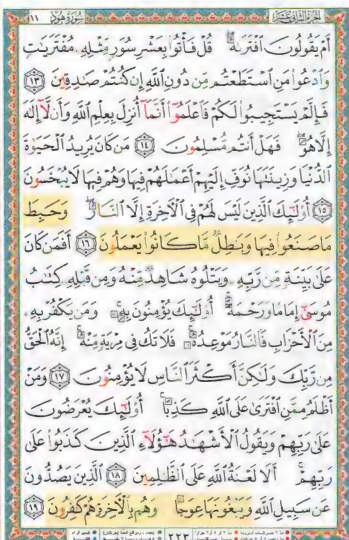 الجزء الثاني عشر ١١ سورة هود
أَمْ يَقُولُونَ افْتَرَىٰهُ قُلْ فَأْتُوا بِعَشْرِ سُوَرٍ مِّثْلِهِ مُفْتَرَيَٰتٍ
وَادْعُوا مَنِ اسْتَطَعْتُم مِّن دُونِ اللَّهِ إِن كُنتُمْ صَٰدِقِينَ ١٣
فَإِلَّمْ يَسْتَجِيبُوا لَكُمْ فَاعْلَمُوا أَنَّمَا أُنزِلَ بِعِلْمِ اللَّهِ وَأَن لَّا إِلَٰهَ
إِلَّا هُوَ فَهَلْ أَنتُم مُّسْلِمُونَ ١٤ مَن كَانَ يُرِيدُ الْحَيَوٰةَ
الدُّنْيَا وَزِينَتَهَا نُوَفِّ إِلَيْهِمْ أَعْمَٰلَهُمْ فِيهَا وَهُمْ فِيهَا لَا يُبْخَسُونَ
١٥ أُولَٰئِكَ الَّذِينَ لَيْسَ لَهُمْ فِي الْآخِرَةِ إِلَّا النَّارُ وَحَبِطَ
مَا صَنَعُوا فِيهَا وَبَٰطِلٌ مَّا كَانُوا يَعْمَلُونَ ١٦ أَفَمَن كَانَ
عَلَىٰ بَيِّنَةٍ مِّن رَّبِّهِ وَيَتْلُوهُ شَاهِدٌ مِّنْهُ وَمِن قَبْلِهِ كِتَٰبُ
مُوسَىٰ إِمَامًا وَرَحْمَةً أُولَٰئِكَ يُؤْمِنُونَ بِهِ وَمَن يَكْفُرْ بِهِ
مِنَ الْأَحْزَابِ فَالنَّارُ مَوْعِدُهُ فَلَا تَكُ فِي مِرْيَةٍ مِّنْهُ إِنَّهُ الْحَقُّ
مِن رَّبِّكَ وَلَٰكِنَّ أَكْثَرَ النَّاسِ لَا يُؤْمِنُونَ ١٧ وَمَنْ
أَظْلَمُ مِمَّنِ افْتَرَىٰ عَلَى اللَّهِ كَذِبًا أُولَٰئِكَ يُعْرَضُونَ
عَلَىٰ رَبِّهِمْ وَيَقُولُ الْأَشْهَٰدُ هَٰؤُلَاءِ الَّذِينَ كَذَبُوا عَلَىٰ
رَبِّهِمْ أَلَا لَعْنَةُ اللَّهِ عَلَى الظَّٰلِمِينَ ١٨ الَّذِينَ يَصُدُّونَ
عَن سَبِيلِ اللَّهِ وَيَبْغُونَهَا عِوَجًا وَهُم بِالْآخِرَةِ هُمْ كَٰفِرُونَ ١٩
٢٢٣